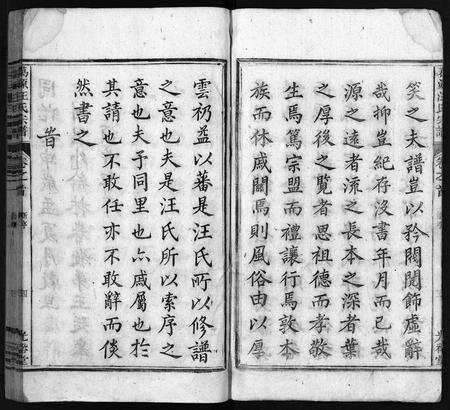 笑之夫譜豈以矜閥閱飾虛辭
哉抑豈紀存沒書年月而已哉
源之遠者流之長本之深者葉
之厚後之覽者思祖德而孝敬
生焉篤宗盟而禮讓行焉敦本
族而休戚關焉則風俗由以厚
雲礽益以蕃是汪氏所以修譜
之意也夫是汪氏所以索序之
意也夫予同里也亼戚屬也於
其請也不敢任亦不敢辭而倓
然書之
旹
汪氏宗譜
卷之首
四
光裕堂